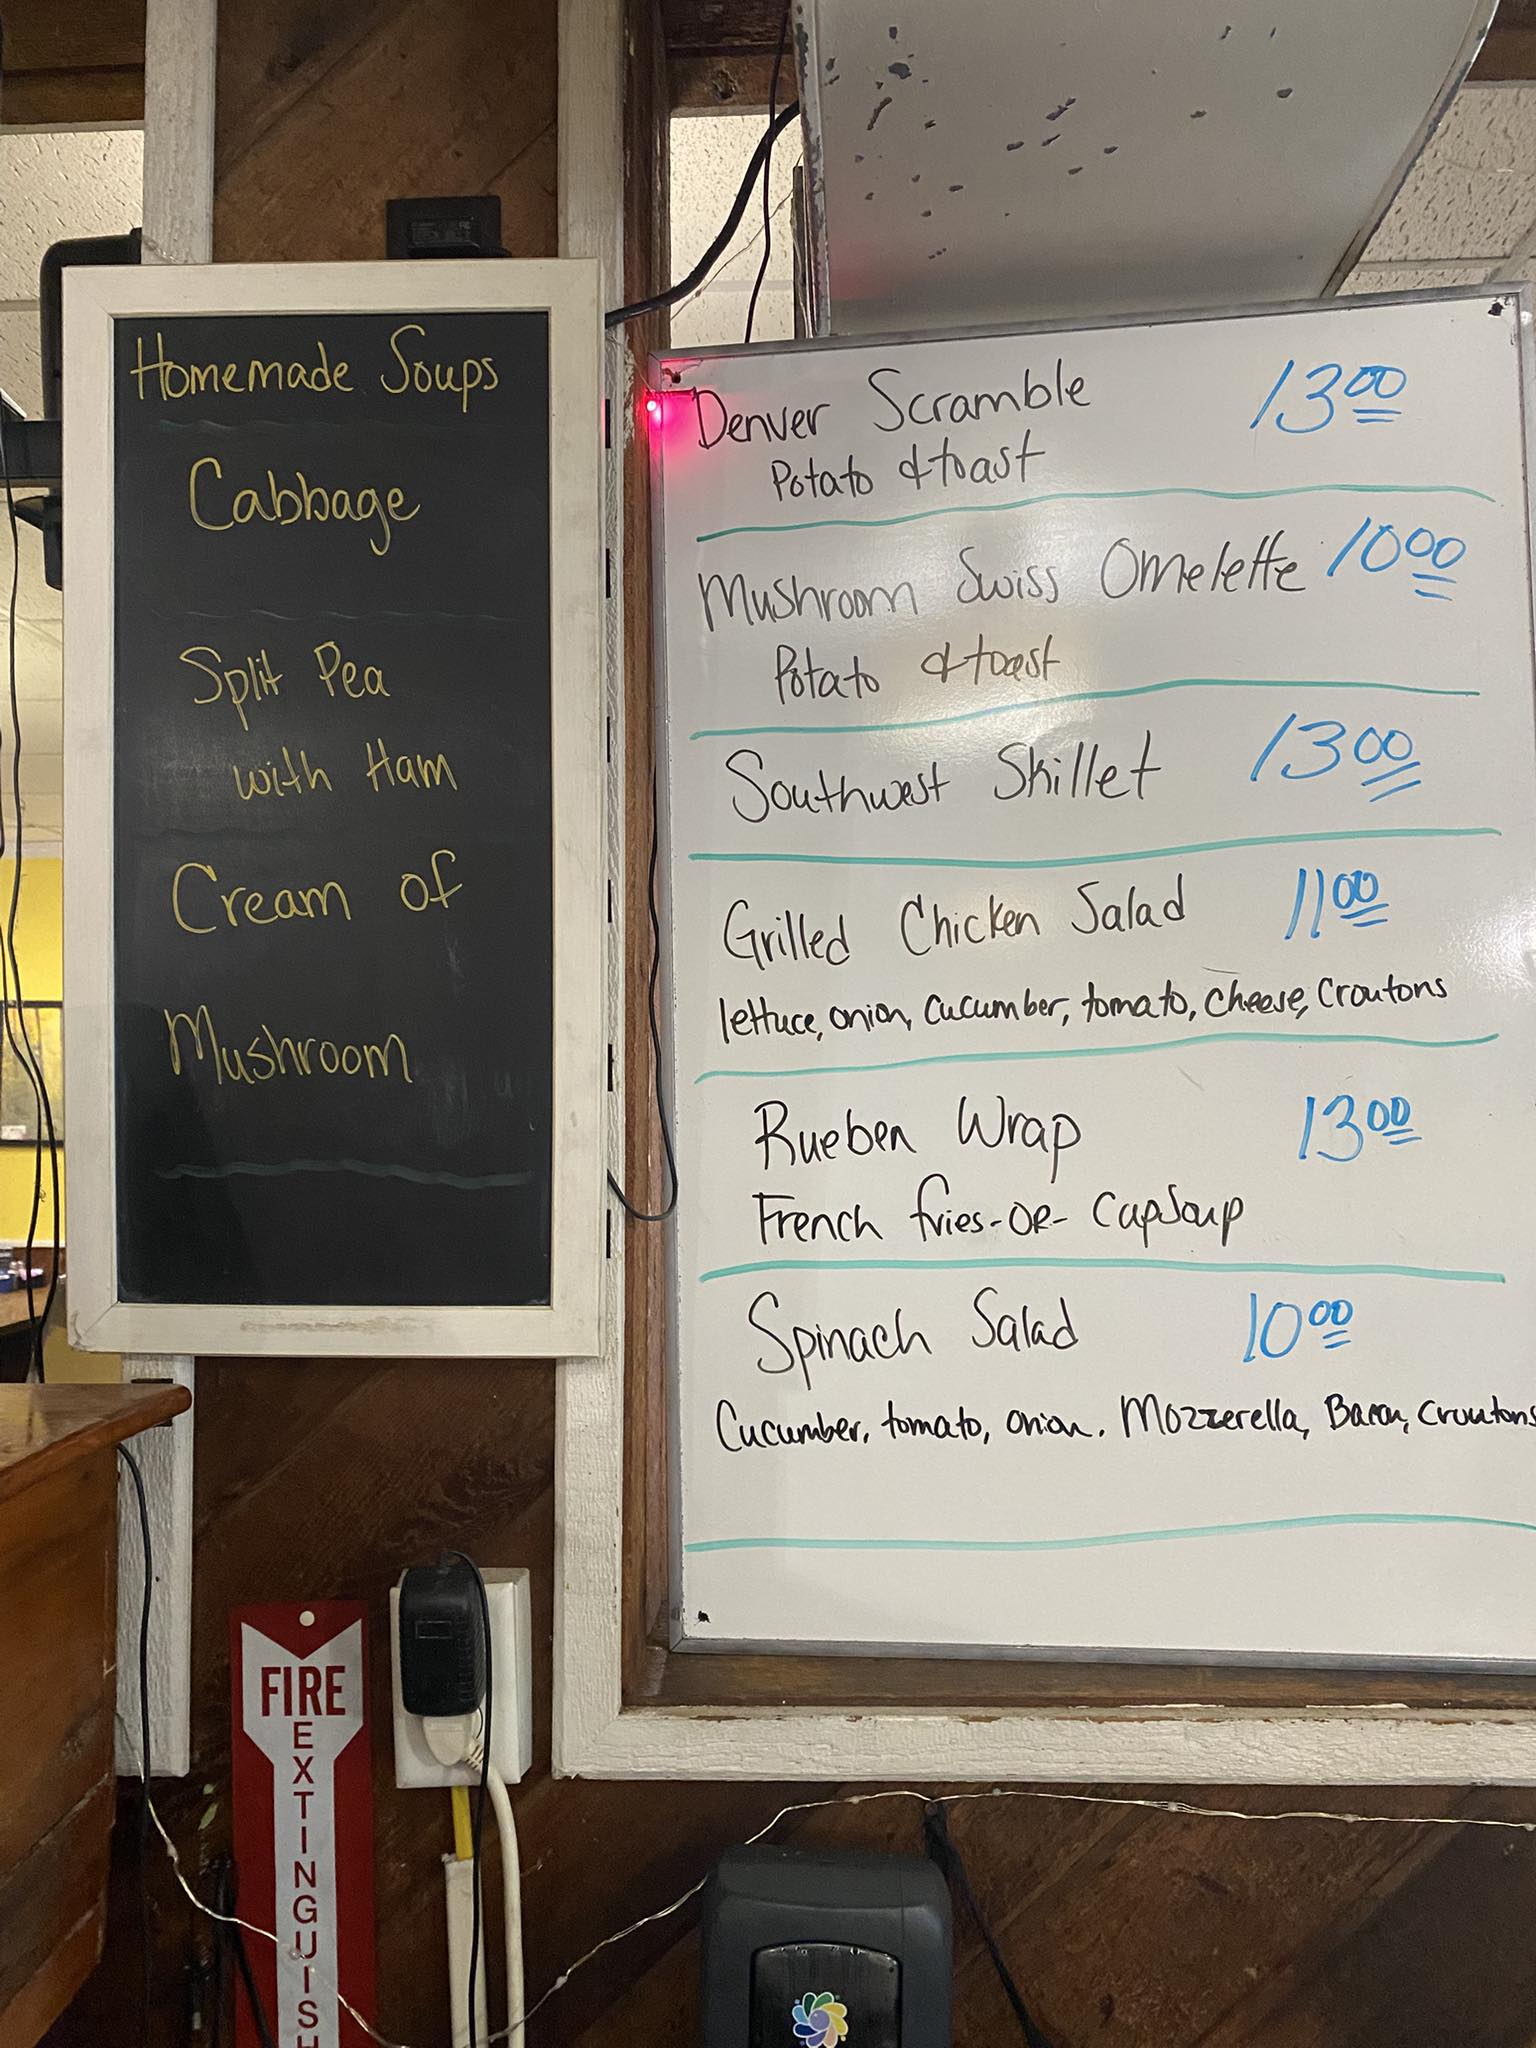 Homemade Soups
Cabbage
Split Pea
with Ham
Cream of
Mushroom
Denver Scramble 13 00
Potato & toast
Mushroom Swiss Omelette 10 00
Potato & toast
Southwest Skillet 13 00
Grilled Chicken Salad 11 00
lettuce, onion, cucumber, tomato, cheese, croutons
Rueben Wrap 13 00
French fries -OR- Cup Soup
Spinach Salad 10 00
Cucumber, tomato, onion. Mozzerella, Bacon, croutons
FIRE
EXTINGUISH